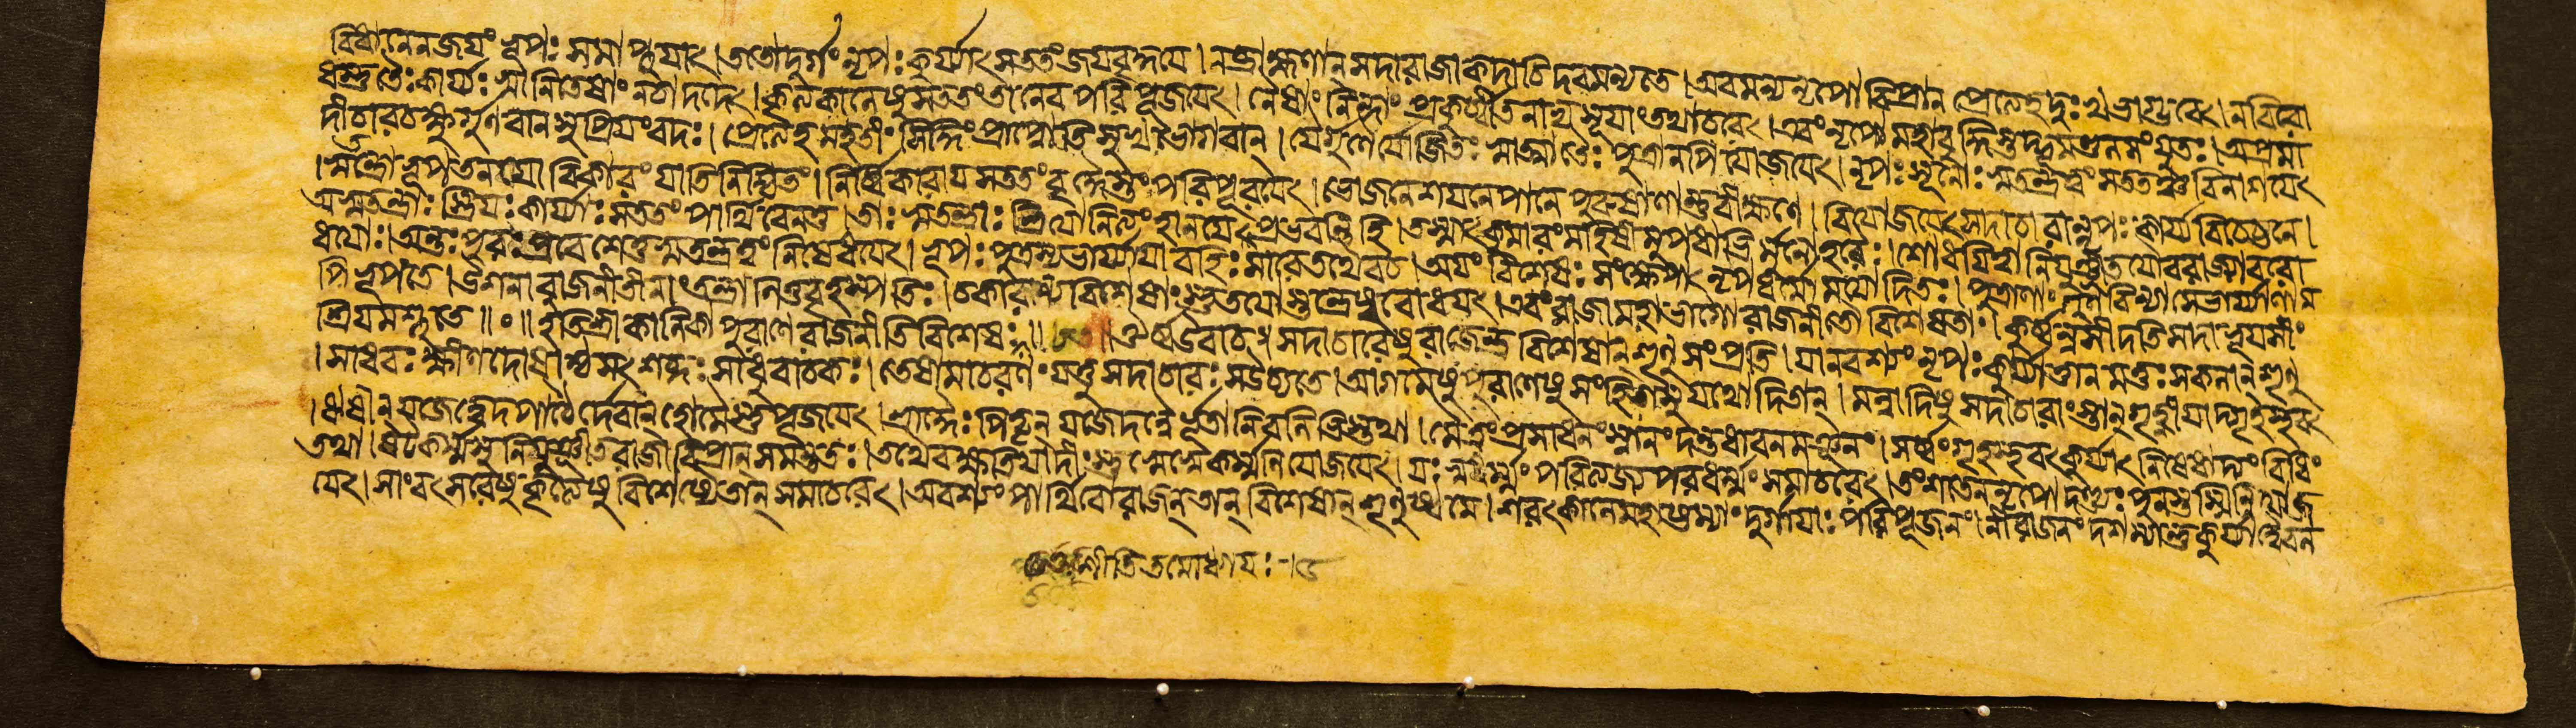 বিধানেন জয়ং নৃপঃ সমাপ্নুয়াৎ। ততো দুর্গং নৃপঃ কুর্য্যাৎ সততং জয়বৃদ্ধয়ে। ন ব্রাহ্মণান্ সদা রাজা কদাচিদবমন্যতে। অবমন্য নৃপো বিপ্রান্ প্রেত্যেহ দুঃখভাগ্ভবেৎ। ন বিরো
ধস্তু তৈঃ কার্য্যঃ স্বানি তেষাং ন চাদদেৎ। কৃত্যকালেষু সততং তানেব পরিপূজয়েৎ। নৈষাং নিন্দাং প্রকুর্ব্বীত নাভ্যসূয়াং তথাচরেৎ। এবং নৃপো মহাবুদ্ধি
দীচারচক্ষুর্গুণবান্ সুপ্রিয়ংবদঃ। প্রেত্যেহ মহতীং সিদ্ধিং প্রাপ্নোতি সুখভোগবান্। যৈর্গুণৈর্যোজিতঃ স্বাত্মা তৈঃ পুত্রানপি যোজয়েৎ। নৃপঃ স্বতন্ত্রত্বং সততঞ্চ বিনাশয়েৎ
স্বতন্ত্রো নৃপতনয়ো বিকারং যাতি নিশ্চিতং। নির্ব্বিকারায় সততং পরিপূরয়েৎ। ভোজনে শয়নে পানে পুরুষাণাঞ্চ বীক্ষণে। বিয়োজয়েৎ সদা দারান্ নৃপঃ কার্য্যবিচেষ্টনে।
অস্বতন্ত্রাঃ স্ত্রিয়ঃ কার্য্যাঃ সততং পার্থিবেন তু। তাঃ স্বতন্ত্রাঃ স্ত্রিয়ো নিত্যং হানয়ে প্রভবন্তি হি। তস্মাৎ কুমারং মহিষীমুপধাভির্মনোহরৈঃ। শোধয়িত্বা নিযুঞ্জীত যৌবরাজ্যাবরো
ধয়োঃ। অন্তঃপুরপ্রবেশে তু স্বতন্ত্রত্বং নিষেধয়েৎ। নৃপঃ পুত্রস্য ভার্য্যায়া বহিঃসারে তথৈব চ। অয়ং বিশেষঃ সংক্ষেপাৎ নৃপধর্ম্মো ময়োদিতঃ। পুত্রাণাং গুণবিন্যাসে ভার্য্যাণাম
পি ভূপতে। উশনা রাজনীতীনাং তন্ত্রাণি তু বৃহস্পতিঃ। চকারান্যান্ বিশেষাংস্তু তয়োস্তন্ত্রেষু বোধয়েৎ। এবং রাজা মহাভাগো রাজনীতৌ বিশেষতঃ। কুর্ব্বন্ন সীদতি সদা ভূয়সীং
শ্রিয়মশ্নুতে॥০॥ ইতি শ্রীকালিকাপুরাণে রাজনীতিবিশেষঃ॥ ঔর্ব্ব উবাচ। সদাচারেষু রাজেন্দ্র বিশেষান্ শৃণু সংপ্রতি। যানবশ্যং নৃপঃ কুর্য্যাত্তান্ মত্তঃ সকলান্ শৃণু
। সাধবঃ ক্ষীণদোষাশ্চ সৎশব্দঃ সাধুবাচকঃ। তেষামাচরণং যত্তু সদাচারঃ স উচ্যতে। আগমেষু পুরাণেষু সংহিতাসু যথোদিতান্। মন্বাদিষু সদাচারাংস্তান্ গৃহ্ণীয়াদ্গৃহস্থবৎ
। ঋষীন্ যজেদ্বেদপাঠৈর্দেবান্ হোমৈস্তু পূজয়েৎ। শ্রাদ্ধৈঃ পিতৄন্ যজেদন্নৈর্ভূতানি বলিভিস্তথা। মৈত্রং প্রসাধনং স্নানং দন্তধাবনমঞ্জনং। সর্ব্বং গৃহস্থবৎ কুর্য্যাৎ নিষেধাদ্যং বিধিং
তথা। ষট্কর্ম্মসু নিযুঞ্জীত রাজা বিপ্রান্ সমন্ততঃ। তথৈব ক্ষত্রিয়াদীংশ্চ স্বে স্বে কর্ম্মনি যোজয়েৎ। যঃ স্বধর্ম্মং পরিত্যজ্য পরধর্ম্মং সমাচরেৎ। তং শতেন নৃপো দণ্ড্যঃ পুনস্তস্মিন্নিযোজ
য়েৎ। সাংবৎসরেষু কৃত্যেষু বিশেষ্যৈতান্ সমাচরেৎ। অবশ্যং পার্থিবো রাজন্ তান্ বিশেষান্ শৃণুষ্ব মে। শরৎকালে মহাষ্টম্যাং দুর্গায়াঃ পরিপূজনং। নীরাজনং দশম্যান্তু কুর্য্যাদ্বৈ বল
চতুরশীতিতমোধ্যায়ঃ